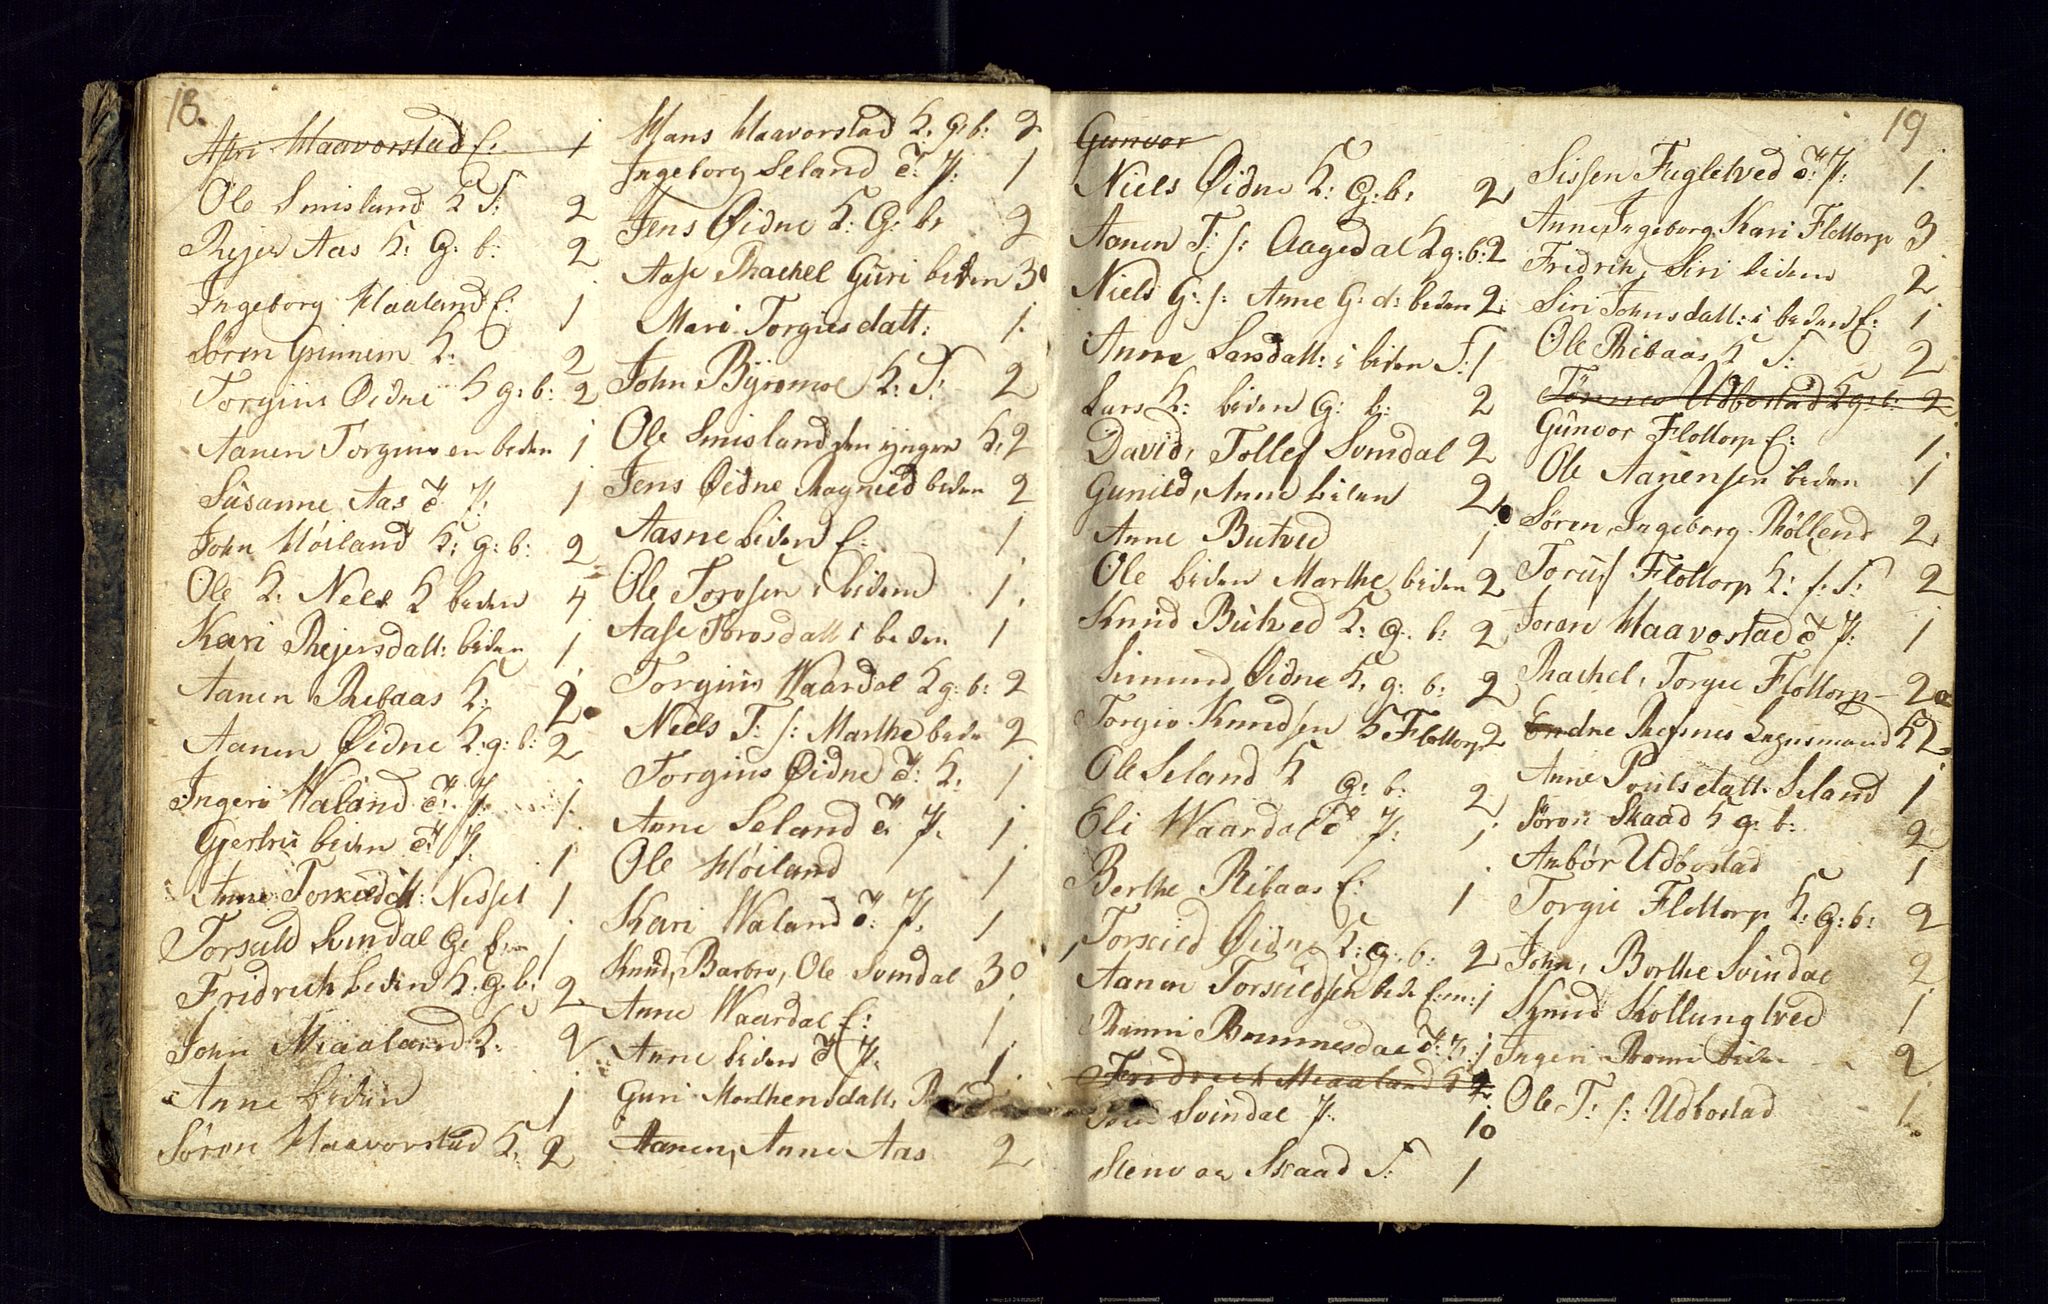 18.
Haavorstad E: 1
Ole Smisland K S: 2
Rejer Aas K: G: b: 2
Ingeborg Haaland E: 1
Sören Grinnem K: 2
Torgius Øidne K g: b: 2
Aanen Torgiusen beden 1
Susanne Aas d: P: 1
John Høiland K: g: b: 2
Ole K. Neel K beden 4
Kari Rejersdatt: beden 1
Aanen Ribaas K: 2
Aanen Øidne K: g: b: 2
Ingeri Waland d: P. 1.
Gjertru beden d: P. 1
Anne Torkildsdt: Nesset 1
Torkild Svindal G: E: 1
Fridrich beden K: g: b: 2
John Miaaland K: 2
Anne beden 1
Sören Haavorstad K. 2
Hans Haavorstad K. g: b: 2
Ingeborg Seland d: P: 1
Jens Øidne K: G: b: 2
Aase Rachel Guri beden 3
Mari Torgiusdatt: 1.
John Byremoe K: S: 2
Ole Smisland den yngere K: 2
Jens Øidne Magnild beden 2
Aasne beden E: 1
Ole Torosen i beden 1.
Aase Torosdatt i beden 1
Torgius Waardal K g: b: 2
Niels T: s: Marthe beden 2
Torgius Øidne d: K: 1
Anne Seland d: P. 1
Ole Høiland 1
Kari Waland d: P. 1
Knud, Barbro, Ole Svindal 3
Anne Waardal E: 1
Anne beden d P. 1.
Guri Morthensdatt: 1
Aanen, Anne Aas 2
19
Gunvor
Niels Øidne K: G: b: 2
Aanen T: s: Aagedal K g: b: 2
Niels G: s: Anne G: d: beden 2
Anne Larsdatt: i beden S: 1
Lars K: beden G: b: 2
David, Tollef Svindal 2
Gunild, Anne beden 2
Anne Butved 1
Ole beden Marthe beden 2
Knud Butved K: G: b: 2
Simund Øidne K. g: b: 2
Torgio Knudsen K Flottorp 2
Ole Seland K G: b: 2
Eli Waardal d P: 1
Berthe Ribaas E: 1
Torkild Øidne K: G: b: 2
Aanen Torkildsen beden 1
Ranni Brunnesdal d: P: 1
Fridrich Miaaland K 2
Svindal P. 10
Stenvor Skaad S: 1
Sissen Fugletved d: P: 1
Anne, Ingeborg, Kari Flottorp 3
Fredrik, Siri beden 2
Siri Johnsdatt: i beden E: 1
Ole Ribaas K S: 2
Tönnes Udbostad K g: b: 2
Gunvor Flottorp E: 1.
Ole Aanensen beden 1
Søren, Ingeborg Röllend 2
Toruf Flottorp K: s: S: 2
Joren Haavostad d P: 1
Rachel, Torgie Flottorp 2
Endne Refsnes Legnsmand K 2
Anne Poulsdatt. Seland 1
Sören Skaad K g: b: 2
Anbör Udbostad 1
Torgie Flottorp K: G: b: 2
John, Berthe Svindal 2
Knud Kollungtved 1
Ingeri Ranni beden 2
Ole T: s: Udbostad 1.